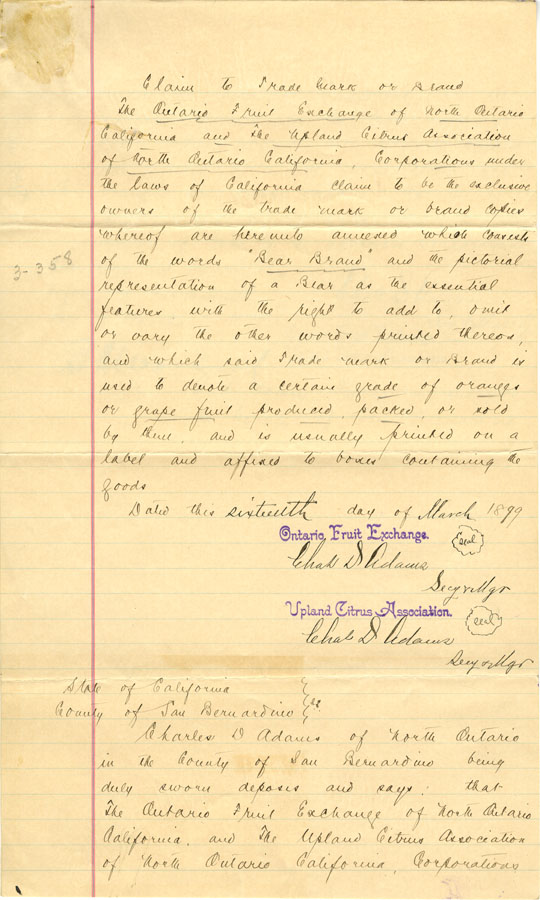 Claim to Trade Mark or Brand
The Ontario Fruit Exchange of North Ontario
California and The Upland Citrus Association
of North Ontario California, Corporations under
the laws of California claim to be the exclusive
owners of the trade mark or brand copies
whereof are hereunto annexed which consists
of the words "Bear Brand" and the pictorial
3-358
representation of a Bear as the essential
features with the right to add to, omit
or vary the other words printed thereon,
and which said Trade mark or Brand is
used to denote a certain grade of oranges
or grape fruit produced, packed, or sold
by them, and is usually printed on a
label and affixed to boxes containing the
goods
Dated this sixteenth day of March 1899
Ontario Fruit Exchange.
Chas D Adams
seal
Secy & Mgr
Upland Citrus Association.
Chas D Adams
seal
Secy & Mgr
State of California
County of San Bernardino } ss
Charles D Adams of North Ontario
in the County of San Bernardino being
duly sworn deposes and says; that
The Ontario Fruit Exchange of North Ontario
California, and The Upland Citrus Association
of North Ontario California, Corporations